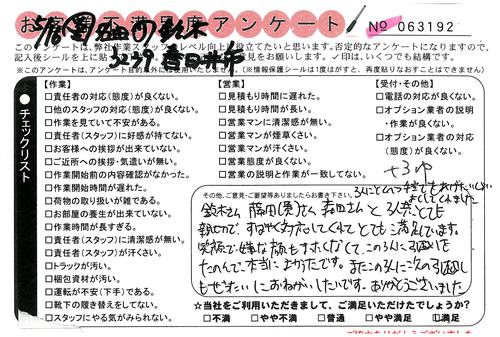 お客様不満足度アンケート
№ 063192
このアンケートは、弊社作業スタッフのレベル向上に役立てたいと思います。否定的なアンケートになりますので、
記入後シールを上に貼って
意見をお願いします。✓印は、いくつでも結構です。
※このアンケートは、アンケート目的以外には使用いたしません。(※情報保護シールは1度がはすと、再度貼りなおすことはできません)
チェックリスト
【作業】
□責任者の対応(態度)が良くない。
□他のスタッフの対応(態度)が良くない。
□作業を見ていて不安がある。
□責任者(スタッフ)に好感が持てない。
□お客様への挨拶が出来ていない。
□ご近所への挨拶・気遣いが無い。
□作業開始前の内容確認がなかった。
□作業開始時間が遅れた。
□荷物の取り扱いが雑である。
□お部屋の養生が出来ていない。
□作業時間が長すぎる。
□責任者(スタッフ)に清潔感が無い。
□責任者(スタッフ)が汗くさい。
□トラックが汚い。
□梱包資材が汚い。
□運転が不安(下手)である。
□靴下の履き替えをしてない。
□スタッフにやる気がみられない。
【営業】
□見積もり時間に遅れた。
□見積もり時間が長い。
□営業マンに清潔感が無い。
□営業マンが煙草くさい。
□営業マンが汗くさい。
□営業態度が良くない。
□営業の説明と作業が一致してない。
【受付・その他】
□電話の対応が良くない。
□オプション業者の説明
・作業が良くない。
□オプション業者の対応
(態度)が良くない。
その他、ご意見・ご要望等ありましたらお書き下さい。
鈴木さん 藤田(勇)さん 森田さんと3人共とても
親切で、すばやく対応してくれてとても満足しています。
笑顔で嫌な顔もまったくなくて、この3人に引越し
たのんで、本当によかったです。またこの3人にこんの引越し
もぜったいにおねがいしたいです。ありがとうございました
★当社をご利用いただきまして、ご満足いただけたでしょうか?
□不満 □やや不満 □普通 □やや満足 □満足